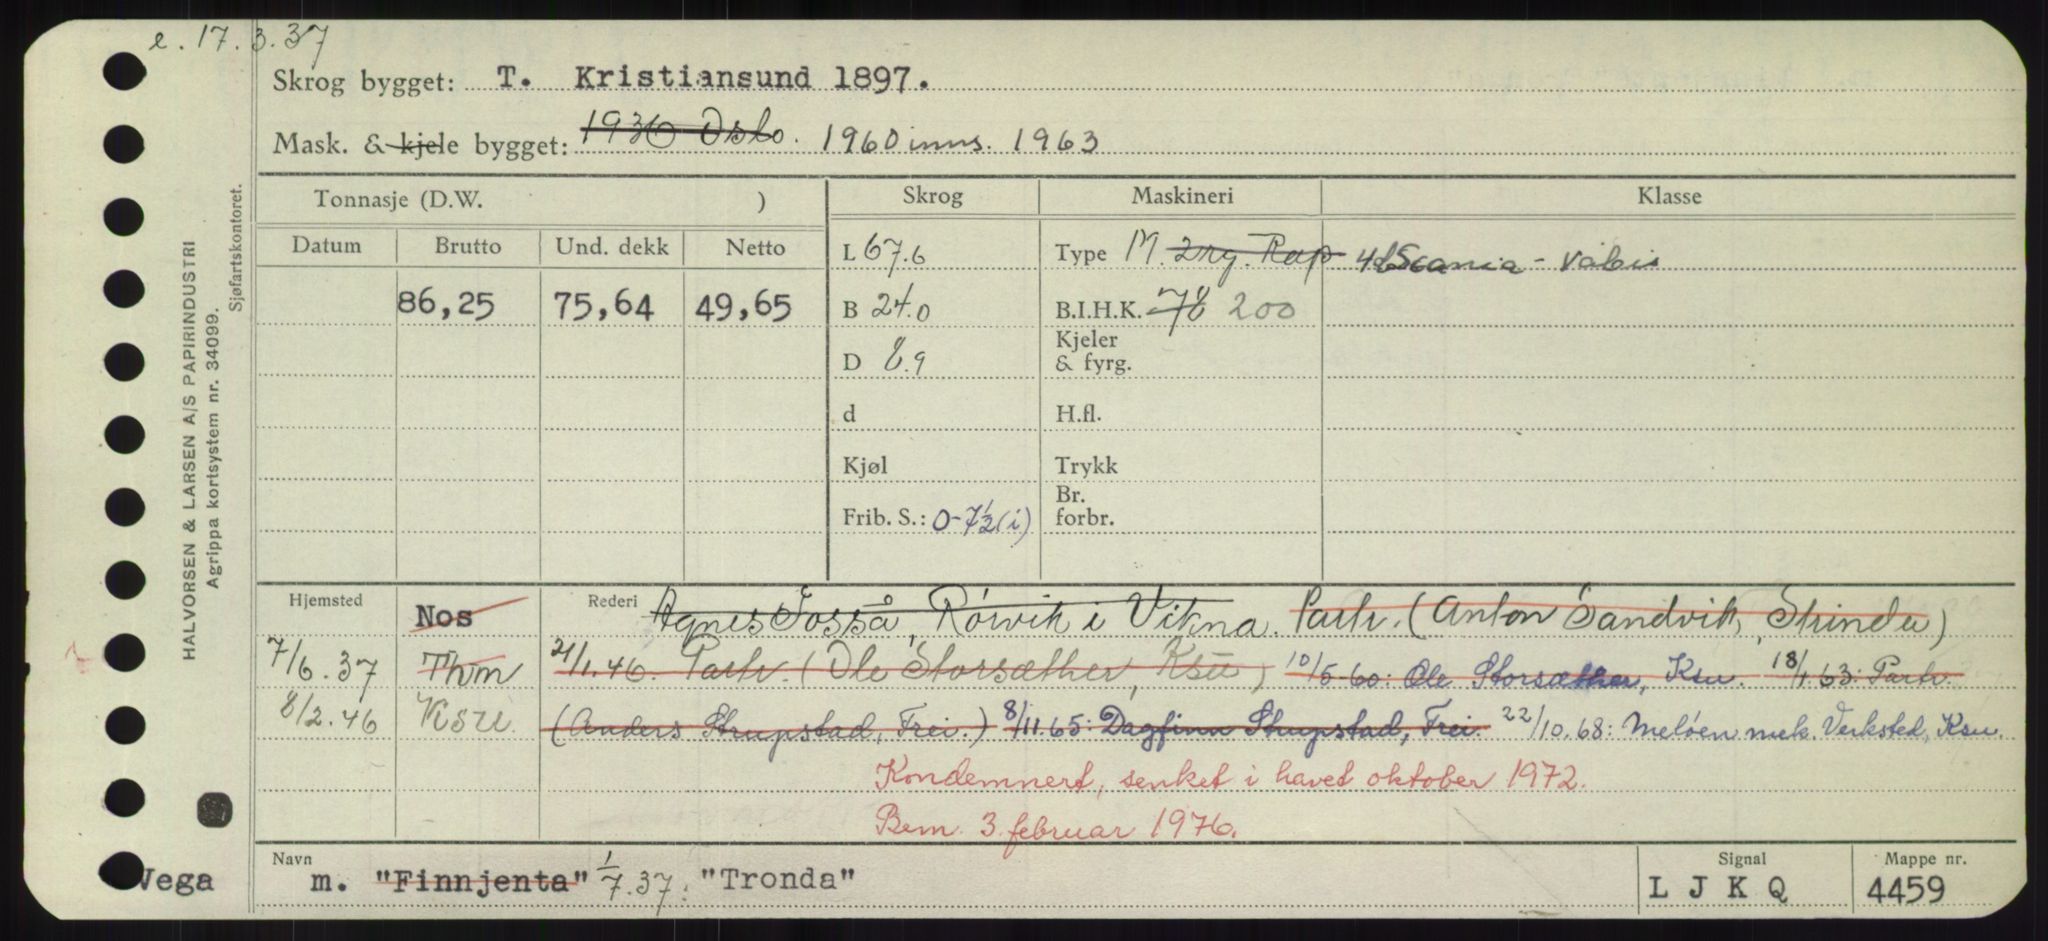 e. 17.3.37
Skrog bygget: T. Kristiansund 1897.
Mask. & kjele bygget: 1936 Oslo. 1960 inns. 1963
Tonnasje (D.W. ) Skrog Maskineri Klasse
Datum Brutto Und. dekk Netto L 67.6 Type M. 2 syl. Rap 4 Scania-Vabis
86,25 75,64 49,65 B 24.0 B.I.H.K. 78 200
D 8.9 Kjeler & fyrg.
d H.fl.
Kjøl Trykk
Frib. S.: 0-7½(i) Br. forbr.
Hjemsted Nos Rederi Agnes Fosså, Rørvik i Vikna. Partr. (Anton Sandvik, Strinda)
7/6.37 Thm 21/1.46. Partr. (Ole Storsæther, Ksu) 10/5-60: Ole Storsæther, Ksu. 18/1.63: Partr.
8/2.46 Ksu. (Anders Strupstad, Frei.) 8/11.65: Dagfinn Strupstad, Frei. 22/10.68: Meløen mek. Verksted, Ksu.
Kondemnert, senket i havet oktober 1972.
Bem. 3. februar 1976.
Navn Signal Mappe nr.
Vega m. "Finnjenta" 1/7.37. "Tronda" L J K Q 4459
HALVORSEN & LARSEN A/S PAPIRINDUSTRI
Agrippa kortsystem nr. 34099.
Sjøfartskontoret.